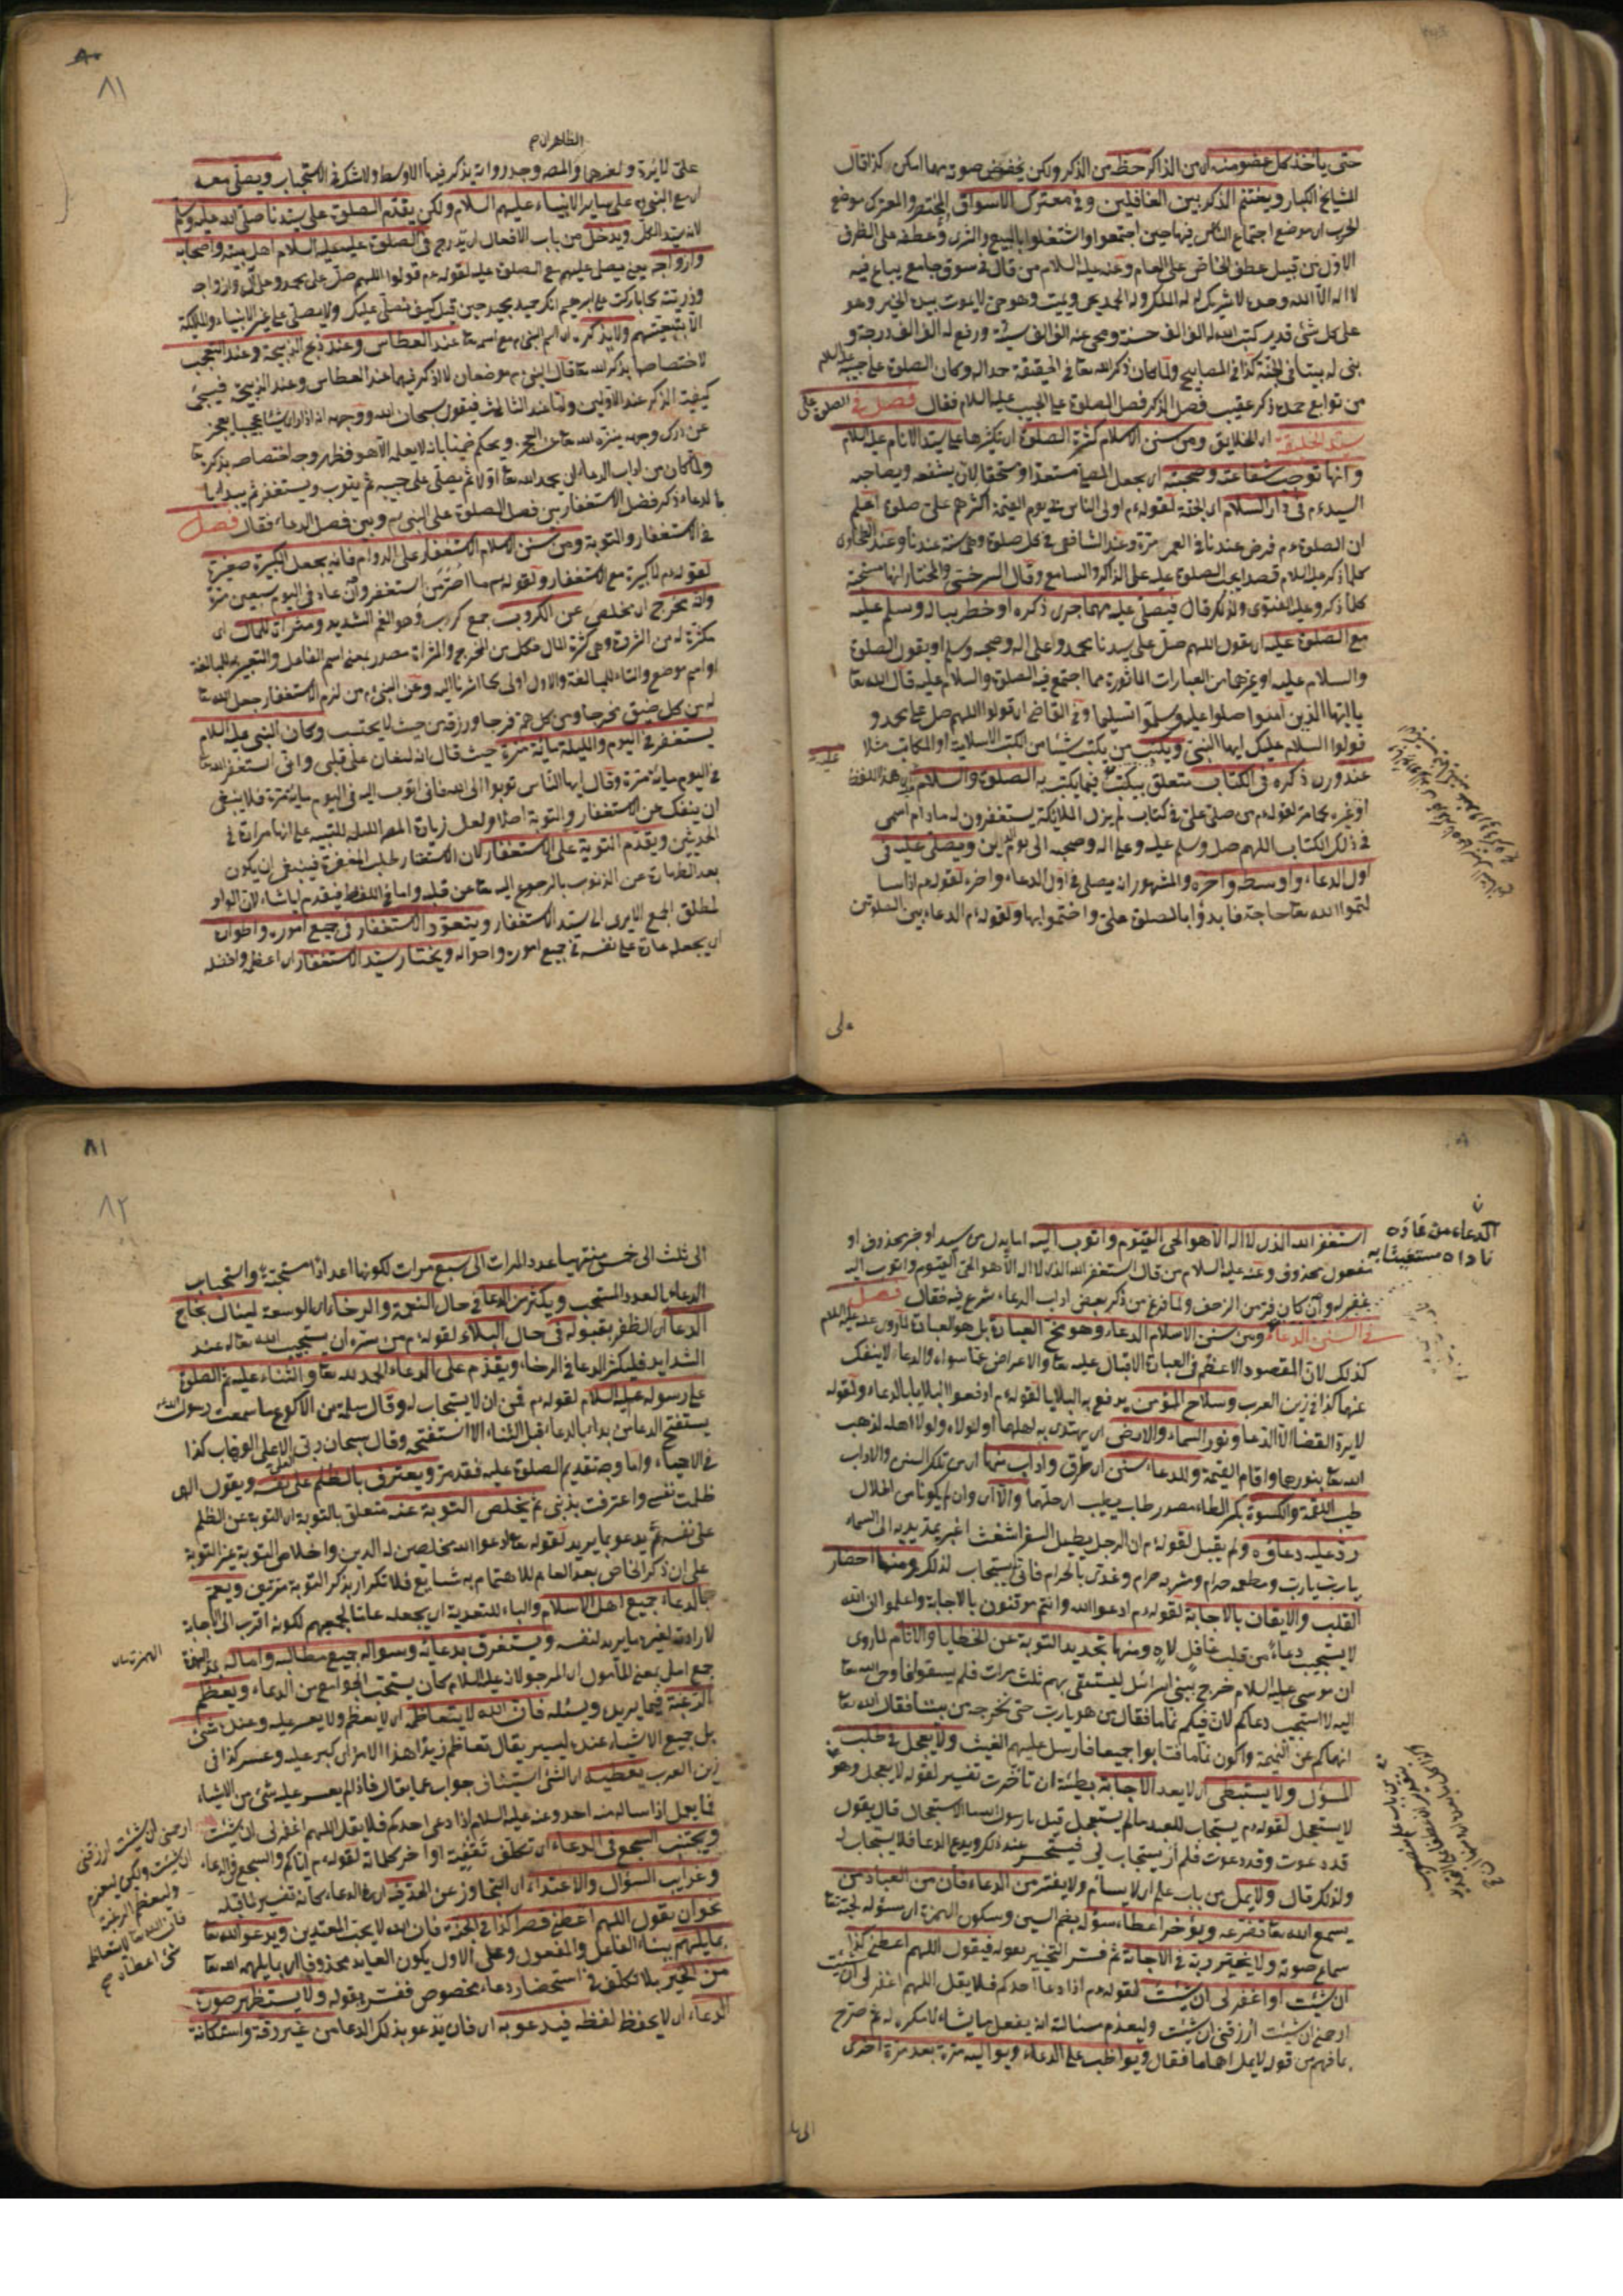 حتى يأخذ كل عضو منه اى من الذاكر حظه من الذكر ولكن يخفض صوته مهما امكن كذا قال
المشايخ الكبار ويغتنم الذكر بين الغافلين وفى معترك الاسواق المختصر والمعترك موضع
الحرب اى موضع اجتماع الناس فيها حين اجتمعوا واشتغلوا بالبيع والشرى وعطفه على الظرف
الاول من قبيل عطف الخاص على العام وعنه عليه السلام من قال فى سوق جامع يباع فيه
لا اله الا الله وحده لا شريك له له الملك وله الحمد يحيى ويميت وهو حى لا يموت بيده الخير وهو
على كل شئ قدير كتب الله له الف الف حسنة ومحى عنه الف الف سيئة ورفع له الف الف درجة و
بنى له بيتا فى الجنة كذا فى المصابيح ولما كان ذكر الله تعا فى الحقيقة حمدا له وكان الصلوة على حبيبه عليه السلام
من توابع حمده ذكر عقيب فصل الذكر فصل الصلوة على الحبيب عليه السلام فقال فصل فى الصلوة على
سيد الخليقة اى الخلايق ومن سنن الاسلام كثرة الصلوة اى تكثيرها على سيد الانام عليه السلام
وانها توجب شفاعته وصحبته اى يجعل المصلى مستعدا ومستحقا لان يشفعه ويصاحبه
السيد ءم فى دار السلام اى الجنة لقوله ءم اولى الناس بى يوم القيمة اكثرهم على صلوة اعلم
ان الصلوة ءم فرض عندنا فى العمر مرة وعند الشافعى فى كل صلوة وهى سنة عندنا وعند الطحاوى
كلما ذكر عليه السلام قصدا يجب الصلوة عليه على الذاكر والسامع وقال السرخسى والمختار انها مستحبة
كلما ذكر وعليه الفتوى ولذلك قال فيصلى عليه مهما جرى ذكره او خطر بباله وسلم عليه
مع الصلوة عليه اى يقول اللهم صل على سيدنا محمد وعلى اله وصحبه وسلم او يقول الصلوة
والسلام عليه او غيرها من العبارات المأثورة مما اجتمع فيه الصلوة والسلام عليه قال الله تعا
يا ايها الذين آمنوا صلوا عليه وسلموا تسليما وفى القاضى اى قولوا اللهم صل على محمد و
قولوا السلام عليك ايها النبى ويكتب من يكتب شيئا من الكتب الاسلامية او المكاتب مثلا
عند ورن ذكره فى الكتاب متعلق بيكتب فيما يكتب به الصلوة والسلام من هذا اللفظ
او غيره كما مر لقوله ءم من صلى على فى كتاب لم يزل الملائكة يستغفرون له مادام اسمى
فى ذلك الكتاب اللهم صل وسلم عليه وعلى اله وصحبه الى يوم الدين ويصلى عليه فى
اول الدعاء واوسطه واخره والمشهور انه يصلى فى اول الدعاء واخره لقوله ءم اذا سا
لتموا الله تعا حاجة فابدؤا بالصلوة على واختموا بها ولقوله ءم الدعاء بين الصلوتين
على
٨١
الظاهر ان م
على لا يرد ولغيرهما والمصه وجد رواية يذكر فيها الاوسط ولا شك فى الاستحباب ويصلى معه
اى مع النبى ءم على ساير الانبياء عليهم السلام ولكن يقدم الصلوة على سيدنا صلى الله عليه وسلم
لانه سيد الكل ويدخل من باب الافعال اى يدرج فى الصلوة عليه عليه السلام اهل بيته واصحابه
وازواجه يعنى يصلى عليهم مع الصلوة عليه لقوله ءم قولوا اللهم صل على محمد وعلى آله وازواجه
وذريته كما باركت على ابرهيم انك حميد مجيد حين قيل كيف نصلى عليك ولا يصلى على غير الانبياء والملئكة
الا بتبعيتهم ولا يذكر اى اسم النبى ءم مع اسمه تعا عند العطاس وعند ذبح الذبيحة وعند التعجب
لاختصاصها بذكر الله تعا قال النبى ءم موضعان لا اذكر فيهما عند العطاس وعند الذبيحة فيجئ
كيفية الذكر عند الاولين واما عند الثالث فيقول سبحان الله ووجهه انه اذا راى شيئا عجيبا يعجز
عن درك وجهه ينزه الله تعا عن العجز ويحكم ضمنا بانه لا يعلمه الا هو فظهر وجه اختصاصه بذكره تعا
ولما كان من اداب الدعاء ان يحمد الله تعا اولا ثم يصلى على حبيبه ثم يتوب ويستغفر ثم يبدأ
بالدعاء ذكر فصل الاستغفار بين فصل الصلوة على النبى ءم وبين فصل الدعاء فقال فصل
فى الاستغفار والتوبة ومن سنن الاسلام الاستغفار على الدوام فانه يجعل الكبيرة صغيرة
لقوله ءم لا كبيرة مع الاستغفار ولقوله ءم ما اصر من استغفر وان عاد فى اليوم سبعين مرة
وانه يخرج اى يخلص عن الكروب جمع كرب وهو الغم الشديد ومثراة للمال اى
مكثرة له من الثروة وهى كثرة المال فكل من المخرج والمثراة مصدر بمعنى اسم الفاعل والتعبير به للمبالغة
او اسم موضع والتاء للمبالغة والاول اولى كما اشرنا اليه وعن النبى ءم من لزم الاستغفار جعل الله تعا
له من كل ضيق مخرجا ومن كل هم فرجا ورزقه من حيث لا يحتسب وكان النبى عليه السلام
يستغفر فى اليوم والليلة مائة مرة حيث قال انه ليغان على قلبى وانى استغفر الله تعا
فى اليوم مائة مرة وقال ايها الناس توبوا الى الله فانى اتوب اليه فى اليوم مائة مرة فلا ينبغى
ان ينفك عن الاستغفار والتوبة اصلا ولعل زيادة المصه الليلة للتنبيه على انها مرادة فى
الحديثين ويقدم التوبة على الاستغفار لان الاستغفار لطلب المغفرة فينبغى ان يكون
بعد الطهارة عن الذنوب بالرجوع اليه تعا عن قلبه واما فى اللفظ فيقدم ايا شاء لان الواو
لمطلق الجمع الا يرى الى سيد الاستغفار ويتعود الاستغفار فى جميع اموره واطواره
اى يجعله عادة على نفسه فى جميع اموره واحواله ويختار سيد الاستغفار اى اعظمه وافضله
استغفر الله الذى لا اله الا هو الحى القيوم واتوب اليه اما بدل من سيد او خبر محذوف او
مفعول محذوف وعنه عليه السلام من قال استغفر الله الذى لا اله الا هو الحى القيوم واتوب اليه
غفر له وان كان فر من الزحف ولما فرغ من ذكر بعض اداب الدعاء شرع فيه فقال فصل
فى السنن الدعاء ومن سنن الاسلام الدعاء وهو مخ العبادة بل هو العبادة لما روى عنه عليه السلام
كذلك لان المقصود الاعظم فى العبادة الاقبال عليه تعا والاعراض عما سواه والدعاء لا ينفك
عنها كذا فى زين العرب وسلاح المؤمن يدفع به البلايا لقوله ءم ادفعوا البلايا بالدعاء ولقوله
لا يرد القضا الا الدعا ونور السماء والارض اى يهتدى به لهلها او لولاه ولولا اهله لذهب
الله تعا بنورها واقام القيمة والدعاء سنن اى طرق واداب منها اى من تلك السنن والاداب
طيب اللقمة والكسوة بكسر الطاء مصدر طاب يطيب اى حلهما والا اى وان لم يكونا من الحلال
رد عليه دعاؤه ولم يقبل لقوله ءم ان الرجل يطيل السفر اشعث اغبر يمد يديه الى السماء
يا رب يا رب ومطعمه حرام ومشربه حرام وغذى بالحرام فانى يستجاب لذلك ومنها احضار
القلب والايقان بالاجابة لقوله ءم ادعوا الله وانتم موقنون بالاجابة واعلموا ان الله
لا يستجيب دعاء من قلب غافل لاه ومنها تجديد التوبة عن الخطايا والاثام لما روى
ان موسى عليه السلام خرج ببنى اسرائيل ليستسقى بهم ثلث مرات فلم يسقوا فاوحى الله تعا
اليه لا استجيب دعاكم لان فيكم نماما فقال من هو يا رب حتى نخرجه من بيننا فقال الله تعا
انهاكم عن النميمة واكون نماما فتابوا جميعا فارسل عليهم الغيث ولا يعجل فى طلب
المسؤل ولا يستبطئ اى لا يعد الاجابة بطيئة ان تأخرت تفسير لقوله لا يعجل وهو
لا يستعجل لقوله ءم يستجاب للعبد ما لم يستعجل قيل يا رسول الله ما الاستعجال قال يقول
قد دعوت وقد دعوت فلم ار يستجاب لى فيستحسر عند ذلك ويدع الدعا فلا يستجاب له
ولذلك قال ولا يمل من باب علم اى لا يسأم ولا يفتر من الدعاء فان من العباد من
يسمع الله تعا تضرعه ويؤخر اعطاء سؤله بضم السين وسكون الهمزة اى مسؤله لمحبته تعا
سماع صوته ولا يخير ربه فى الاجابة ثم فسر التخيير بقوله فيقول اللهم اعطنى كذا
ان شئت او اغفر لى ان شئت لقوله ءم اذا دعا احدكم فلا يقل اللهم اغفر لى ان شئت
ارحمنى ان شئت ارزقنى ان شئت وليعزم مسئالته انه يفعل ما يشاء لا مكره له ثم صرح
بما فهم من قوله لا يمل اهتماما فقال ويواظب على الدعاء ويواليه مرة بعد مرة اخرى
الدعاء من عاده
ناداه مستغيثا به
٨١
٨٢
الى ثلث الى خمس منتهيا عدد المرات الى سبع مرات لكونها اعدادا مستحبة واستحباب
الدعاء بالعدد المستحب ويكثر من الدعا فى حال النعمة والرخاء اى الوسعة لينال نجاح
الدعا اى الظفر بقبوله فى حال البلاء لقوله ءم من سره ان يستجيب الله تعا له عند
الشدايد فليكثر الدعا فى الرخاء ويقدم على الدعاء الحمد لله تعا والثناء عليه ثم الصلوة
على رسوله عليه السلام لقوله ءم قمن ان لا يستجاب له وقال سلمة بن الاكوع ما سمعت رسول الله ءم
يستفتح الدعاء من بدا بالدعاء قبل الثناء الا استفتحه وقال سبحان ربى الاعلى الوهاب كذا
فى الاحياء واما وجه تقديم الصلوة عليه فقد مر ويعترف بالظلم على نفسه ويقول الهى
ظلمت نفسى واعترفت بذنبى ثم يخلص التوبة عنه متعلق بالتوبة اى التوبة عن الظلم
على نفسه ثم يدعو بما يريد لقوله تعا ادعوا الله مخلصين له الدين واخلاص التوبة غير التوبة
على ان ذكر الخاص بعد العام للاهتمام به شايع فلا تكرار بذكر التوبة مرتين ويعم
بالدعاء جميع اهل الاسلام والباء للتعدية اى يجعله عاما لجميعهم لكونه اقرب الى الاجابة
لارادته لغيره ما يريد لنفسه ويستغرق بدعائه وسواله جميع مطالبه واماله بمد الهمزة
جمع امل بمعنى المأمول اى المرجو لانه عليه السلام كان يستحب الجوامع من الدعاء ويعظم
الرغبة فيما يريده ويسئله فان الله لا يتعاظمه اى لا يعظم ولا يعسر عليه وعنده شئ
بل جميع الاشياء عنده يسير يقال تعاظم زيدا هذا الامر اى كبر عليه وعسر كذا فى
زين العرب يعطيه اى الشئ استيناف جواب عما يقال فاذا لم يعسر عليه شئ من الاشياء
فما يعمل اذا ساله منه احد وعنه عليه السلام اذا دعى احدكم فلا يقل اللهم اغفر لى ان شئت
ويجتنب السجع فى الدعاء اى تكلف تقفية اواخر كلماته لقوله ءم اياكم والسجع فى الدعاء
وغرايب السؤال والاعتداء اى التجاوز عن الحد فيه اى فى الدعاء كانه تفسير لما قبله
نحو ان يقول اللهم اعطنى قصرا كذا فى الجنة فان الله لا يحب المعتدين ويدعو الله تعا
بما يلهم ببناء الفاعل والمفعول وعلى الاول يكون العايد محذوفا اى بما يلهمه الله تعا
من الخير بلا تكلف فى استحضار دعاء مخصوص ففسره بقوله ولا يستظهر صورة
الدعاء اى لا يحفظ لفظه فيدعو به اى فان يدعو بذلك الدعا من غير رقة واستكانة
ارحمنى ان شئت ارزقنى
ان شئت ولكن ليعزم
وليعظم الرغبة
فان الله تعا لا يتعاظمه
شئ اعطاه صح